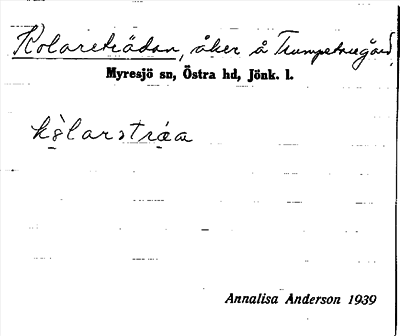 Kolareträdan, åker å Trumpetaregård
Myresjö sn, Östra hd, Jönk. l.
kòlarstráa
Annalisa Anderson 1939